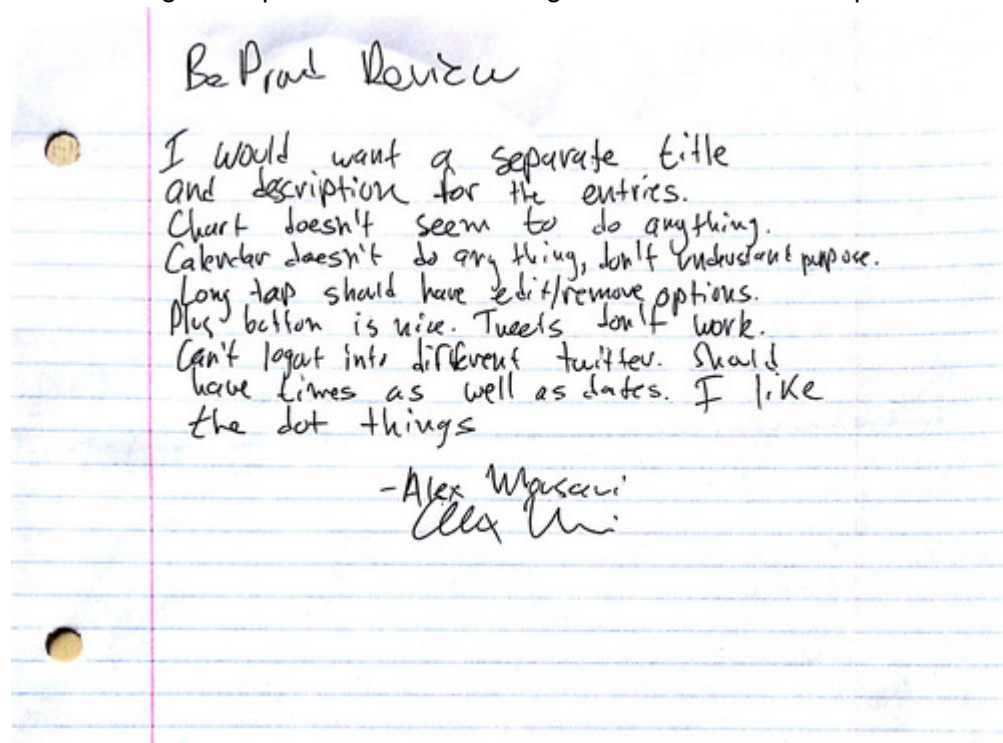 BeProud Review
I would want a separate title
and description for the entries.
Chart doesn't seem to do anything.
Calendar doesn't do any thing, don't understand purpose.
Long tap should have edit/remove options.
Plus button is nice. Tweets don't work.
Can't logout into different twitter. Should
have times as well as dates. I like
the dot things
-Alex